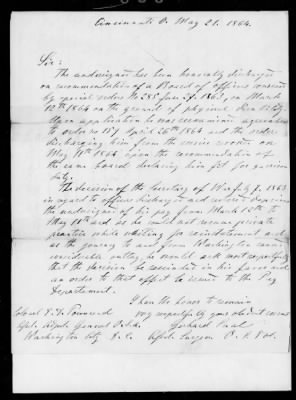 Cincinnati O. May 21. 1864.
Sir:
The undersigned has been honorably discharged
on recommendation of a Board of officers convened
by special orders No 285 June 27. 1863, on March
12th 1864 on the ground of physical disability.
Upon application he was reinstated agreeable
to order No 159 April 26th 1864 and the order
discharging him from the service revoked on
May 11th 1864 upon the recommendation of
the exam board, declaring him fit for
duty.
The decision of the Secretary of War July 7. 1863
in regard to officers discharged and restored deprives
the undersigned of his pay from March 12th to
May 11th and as he could not resume private
practice while waiting for reinstatement and
as the journey to and from Washington caused
considerable outlay, he would ask most respectfully
that the decision be rescinded in his favor and
an order to that effect be issued to the Pay
Department.
I have the honor to remain
very respectfully your obedient servant
Gerhard Saal
Surgeon O. V. Vol.
Colonel E. D. Townsend
Adjutant General U.S.A.
Washington City D.C.